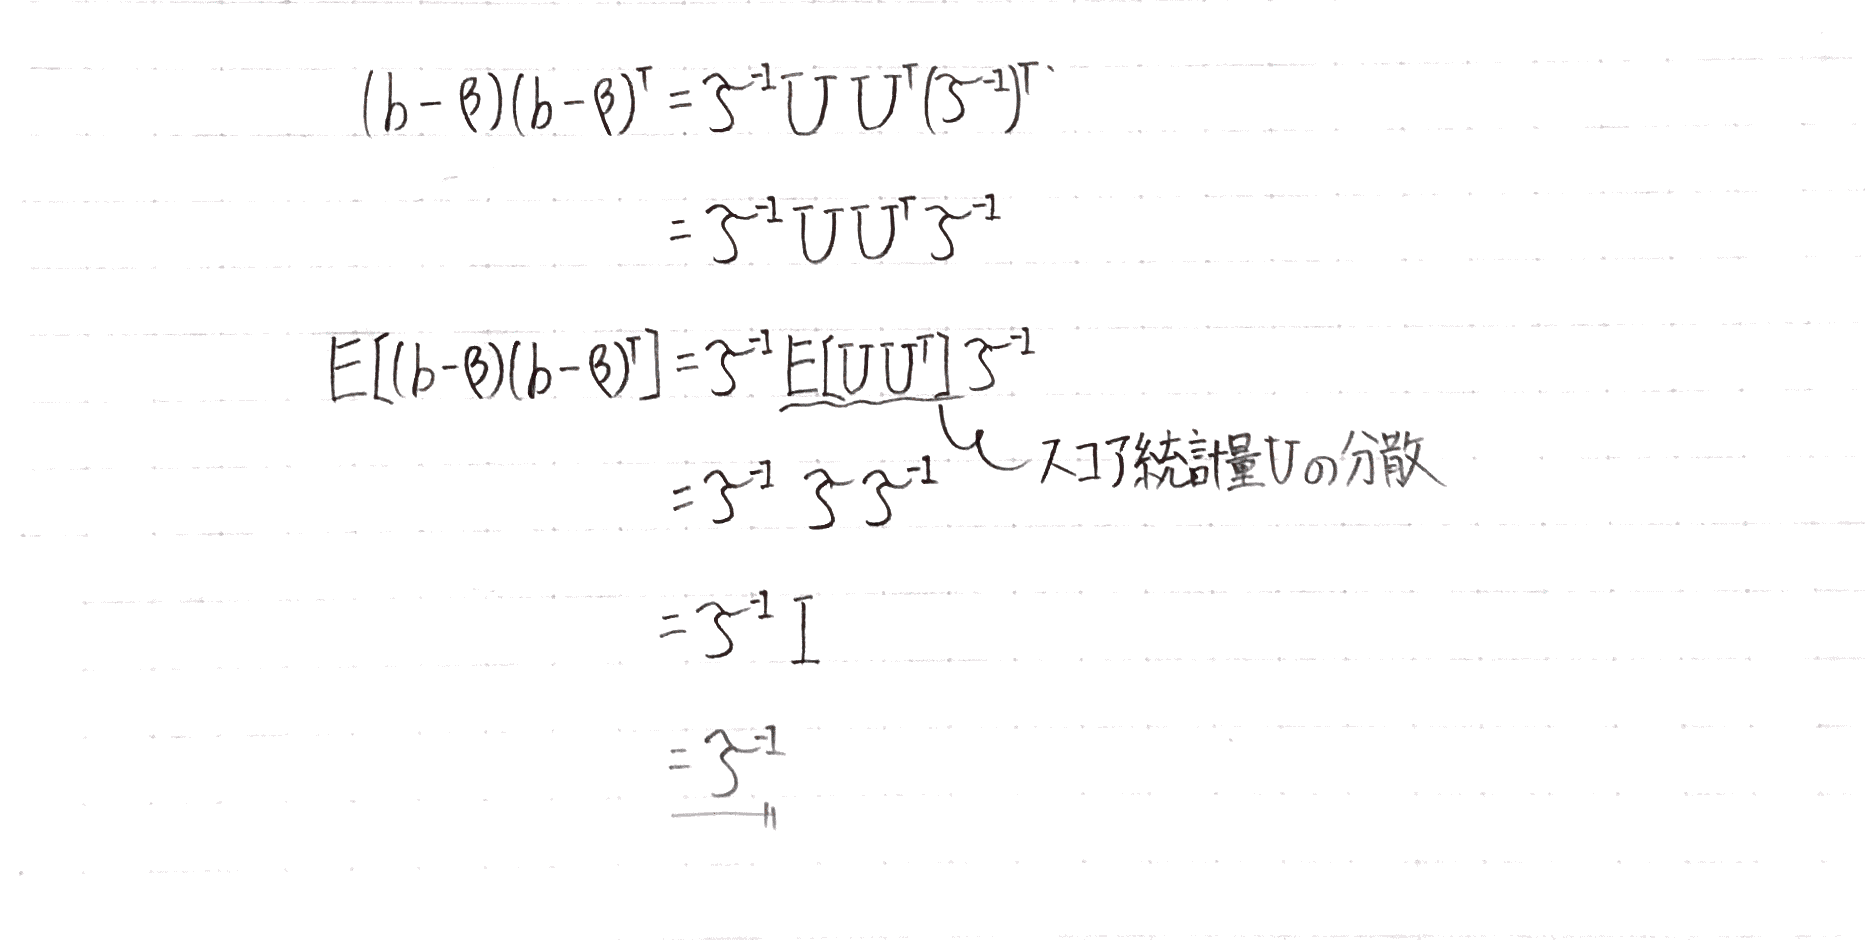 (b-β)(b-β)ᵀ = ℑ⁻¹ U Uᵀ(ℑ⁻¹)ᵀ
= ℑ⁻¹ U Uᵀ ℑ⁻¹
E[(b-β)(b-β)ᵀ] = ℑ⁻¹ E[U Uᵀ] ℑ⁻¹
スコア統計量Uの分散
= ℑ⁻¹ ℑ ℑ⁻¹
= ℑ⁻¹ I
= ℑ⁻¹